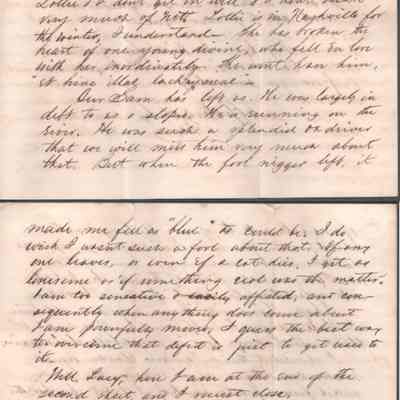 very much of Nat. Lottie is in Nashville for
the winter, I understand. She has broken the
heart of one young divine, who fell in love
with her inordinately. She won't have him,
"et hinc illae lachrymae."
Our Sam has left us. He was largely in
debt to us & slopes. He is running on the
river. He was such a splendid ox driver
that we will miss him very much about
that. But when the fool nigger left, it
made me feel as "blue" as could be. I do
wish I wasn't such a fool about that. If any
one leaves, or even if a cat dies, I get as
lonesome as if something real was the matter.
I am too sensative & easily affected, and con-
sequently when anything does come about
I am powerfully moved. I guess the best way
to overcome that defect is just to get used to
it.
Well Lucy, here I am at the end of the
second sheet, and I must close.